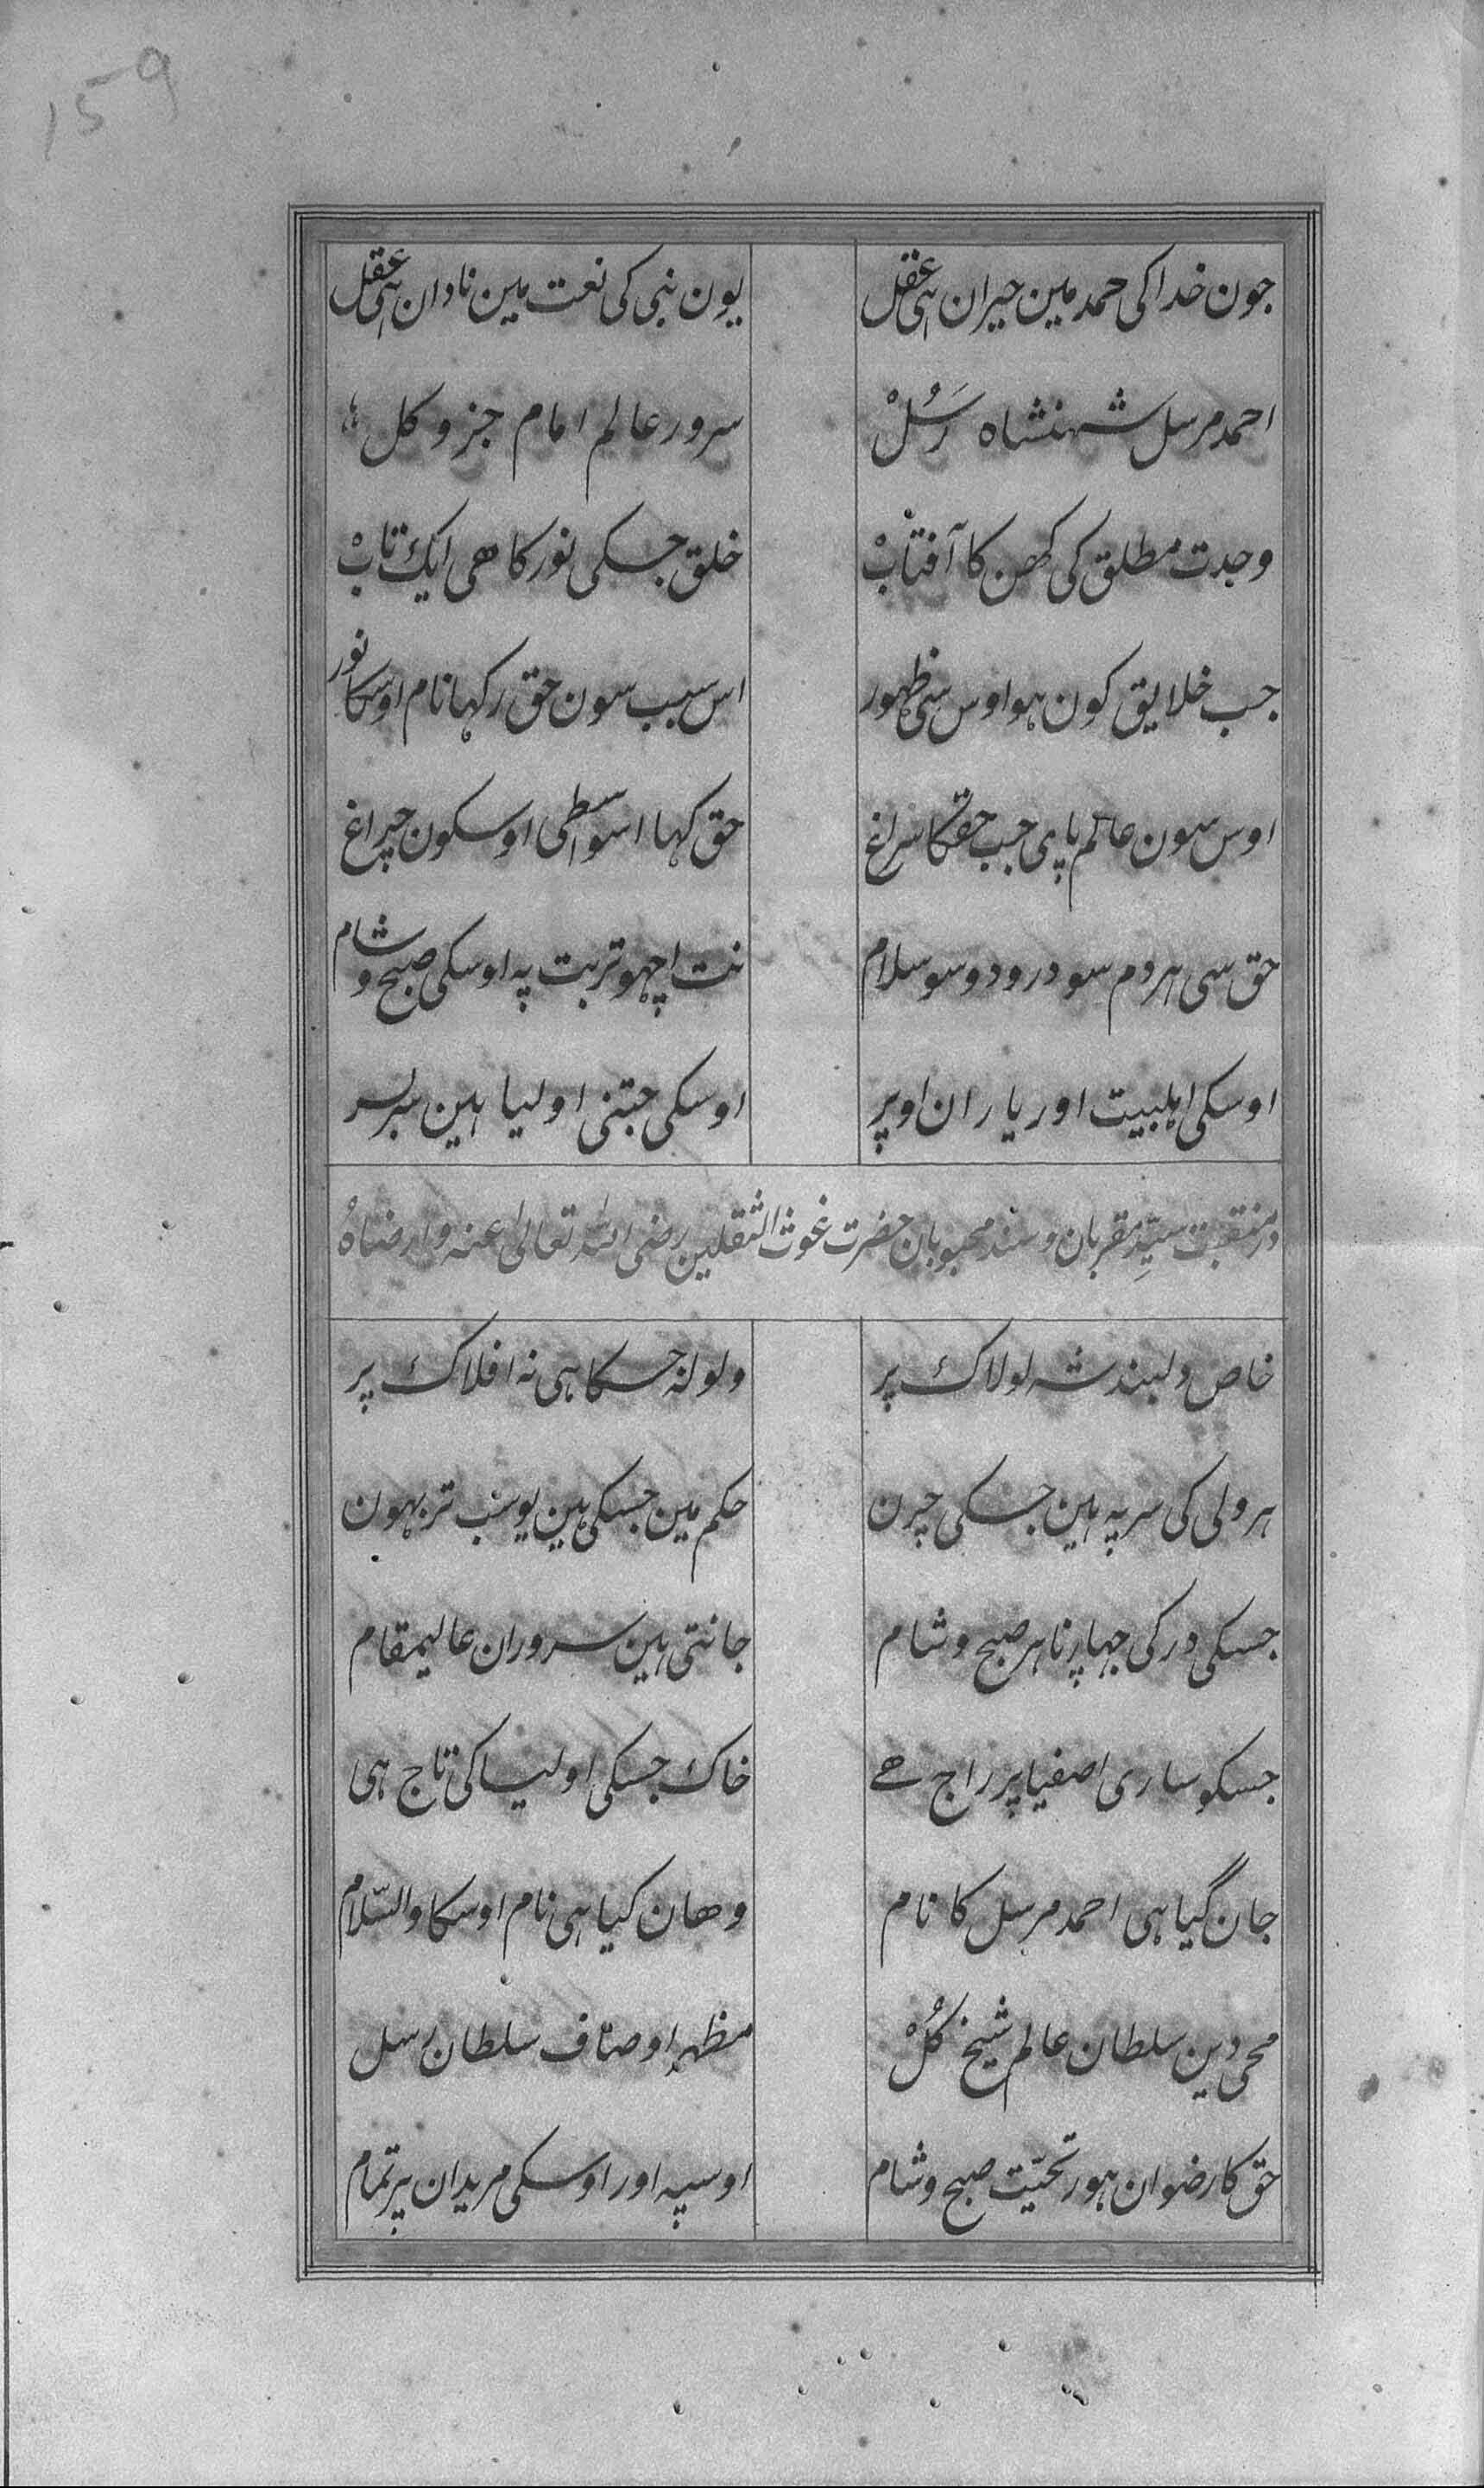 159
جون خدا کی حمد مین حیران ہی عقل یون نبی کی نعت مین نادان ہی عقل
احمد مرسل شہنشاہ رَسُلْ سرور عالم امام جز و کل
وحدت مطلق کی کھن کا آفتابْ خلق جسکی نور کا ھی ایک تابْ
جب خلایق کون ہوا اوس سی ظہور اس سبب سون حق رکہا نام اوسکا نور
اوس سون عالم پای جب حقکا سراغ حق کہا اسواسطی اوسکون چراغ
حق سی ہردم سو درود و سو سلام نت اچہو تربت پہ اوسکی صبح و شام
اوسکی اہلبیت اور یاران اوپر اوسکی جتنی اولیا ہین سربسر
در منقبت سیّدِ مقربان و سند محبوبان حضرت غوث الثقلین رضی اللہ تعالی عنہ و ارضاہُ
خاص دلبند شہ لولاک پر ولولہ جسکا ہی نہ افلاک پر
ہر ولی کی سر پہ ہین جسکی چرن حکم مین جسکی ہین یو سب تربہون
جسکی در کی جہاڑنا ہر صبح و شام جانتی ہین سروران عالیمقام
جسکو ساری اصفیا پر راج ھے خاک جسکی اولیا کی تاج ہی
جان گیا ہی احمد مرسل کا نام وھان کیا ہی نام اوسکا والسّلام
محی دین سلطان عالم شیخ کُلْ مظہرِ اوصاف سلطان رسل
حق کا رضوان ہور تحیّت صبح و شام اوسپہ اور اوسکی مریدان پر تمام